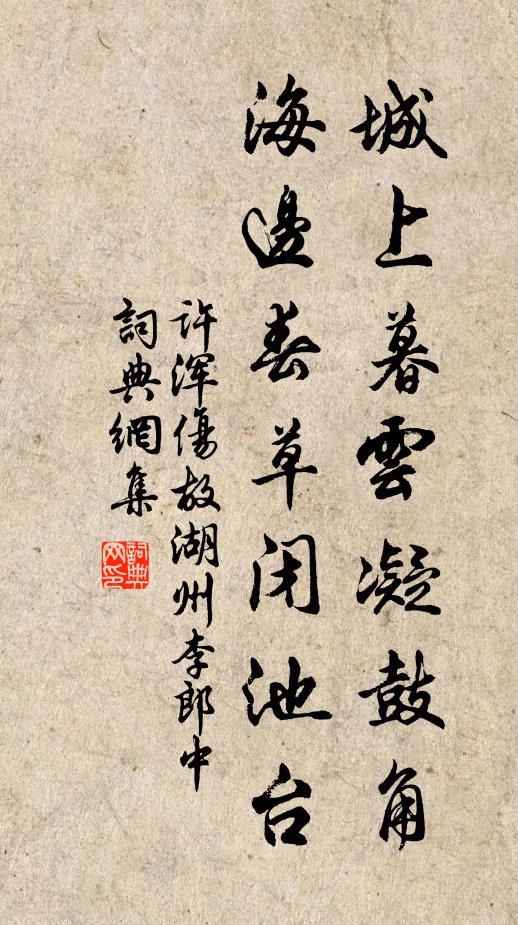 城上暮雲凝鼓角
海邊春草闭池台
许渾傷故湖州李郎中
詞典網集
詞典网印